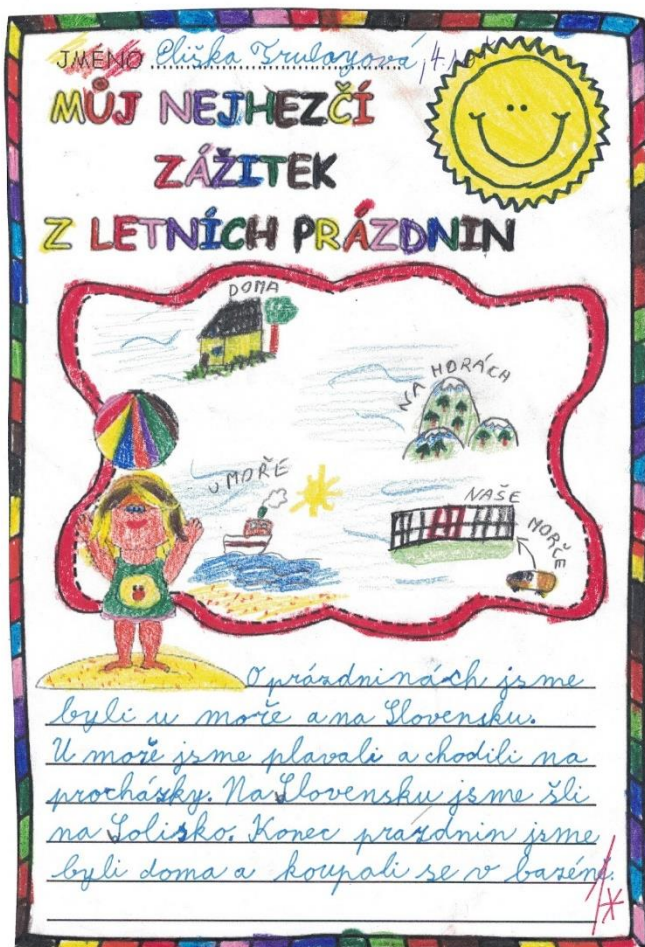 JMÉNO Eliška
MŮJ NEJHEZČÍ
ZÁŽITEK
Z LETNÍCH PRÁZDNIN
DOMA
NA HORÁCH
U MOŘE
NAŠE
MORČE
O prázdninách jsme
byli u moře a na Slovensku.
U moře jsme plavali a chodili na
procházky. Na Slovensku jsme šli
na Solisko. Konec prazdnin jsme
byli doma a koupali se v bazéně.